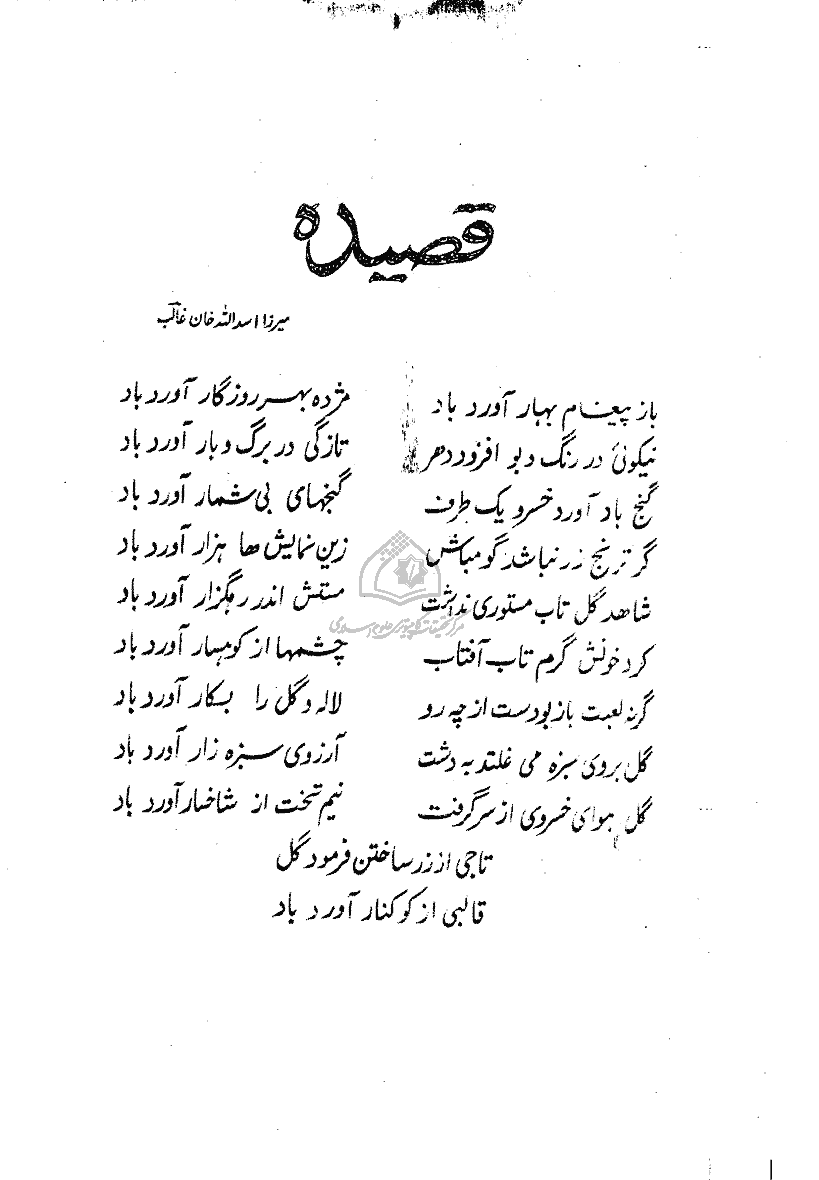 قصیده
میرزا اسد الله خان غالب
باز پیغام بهار آورد باد مژده بهر روزگار آورد باد
نیکوئ در رنگ و بو افزود دهر تازگی در برگ و بار آورد باد
گنج باد آورد خسرو یک طرف گنجهای بی شمار آورد باد
گر ترنج زر نباشد گو مباش زین نمایش ها هزار آورد باد
شاهد گل تاب مستوری نداشت مستش اندر رهگزار آورد باد
کرد خونش گرم تاب آفتاب چشمها از کوهسار آورد باد
گرنه لعبت باز بودست از چه رو لاله و گل را بسکار آورد باد
گل بروی سبزه می غلتد به دشت آرزوی سبزه زار آورد باد
گل هوای خسروی از سر گرفت نیم تخت از شاخسار آورد باد
تاجی از زر ساختن فرمود گل
قالبی از کوکنار آورد باد
مرکز تحقیقات کامپیوتری علوم اسلامی